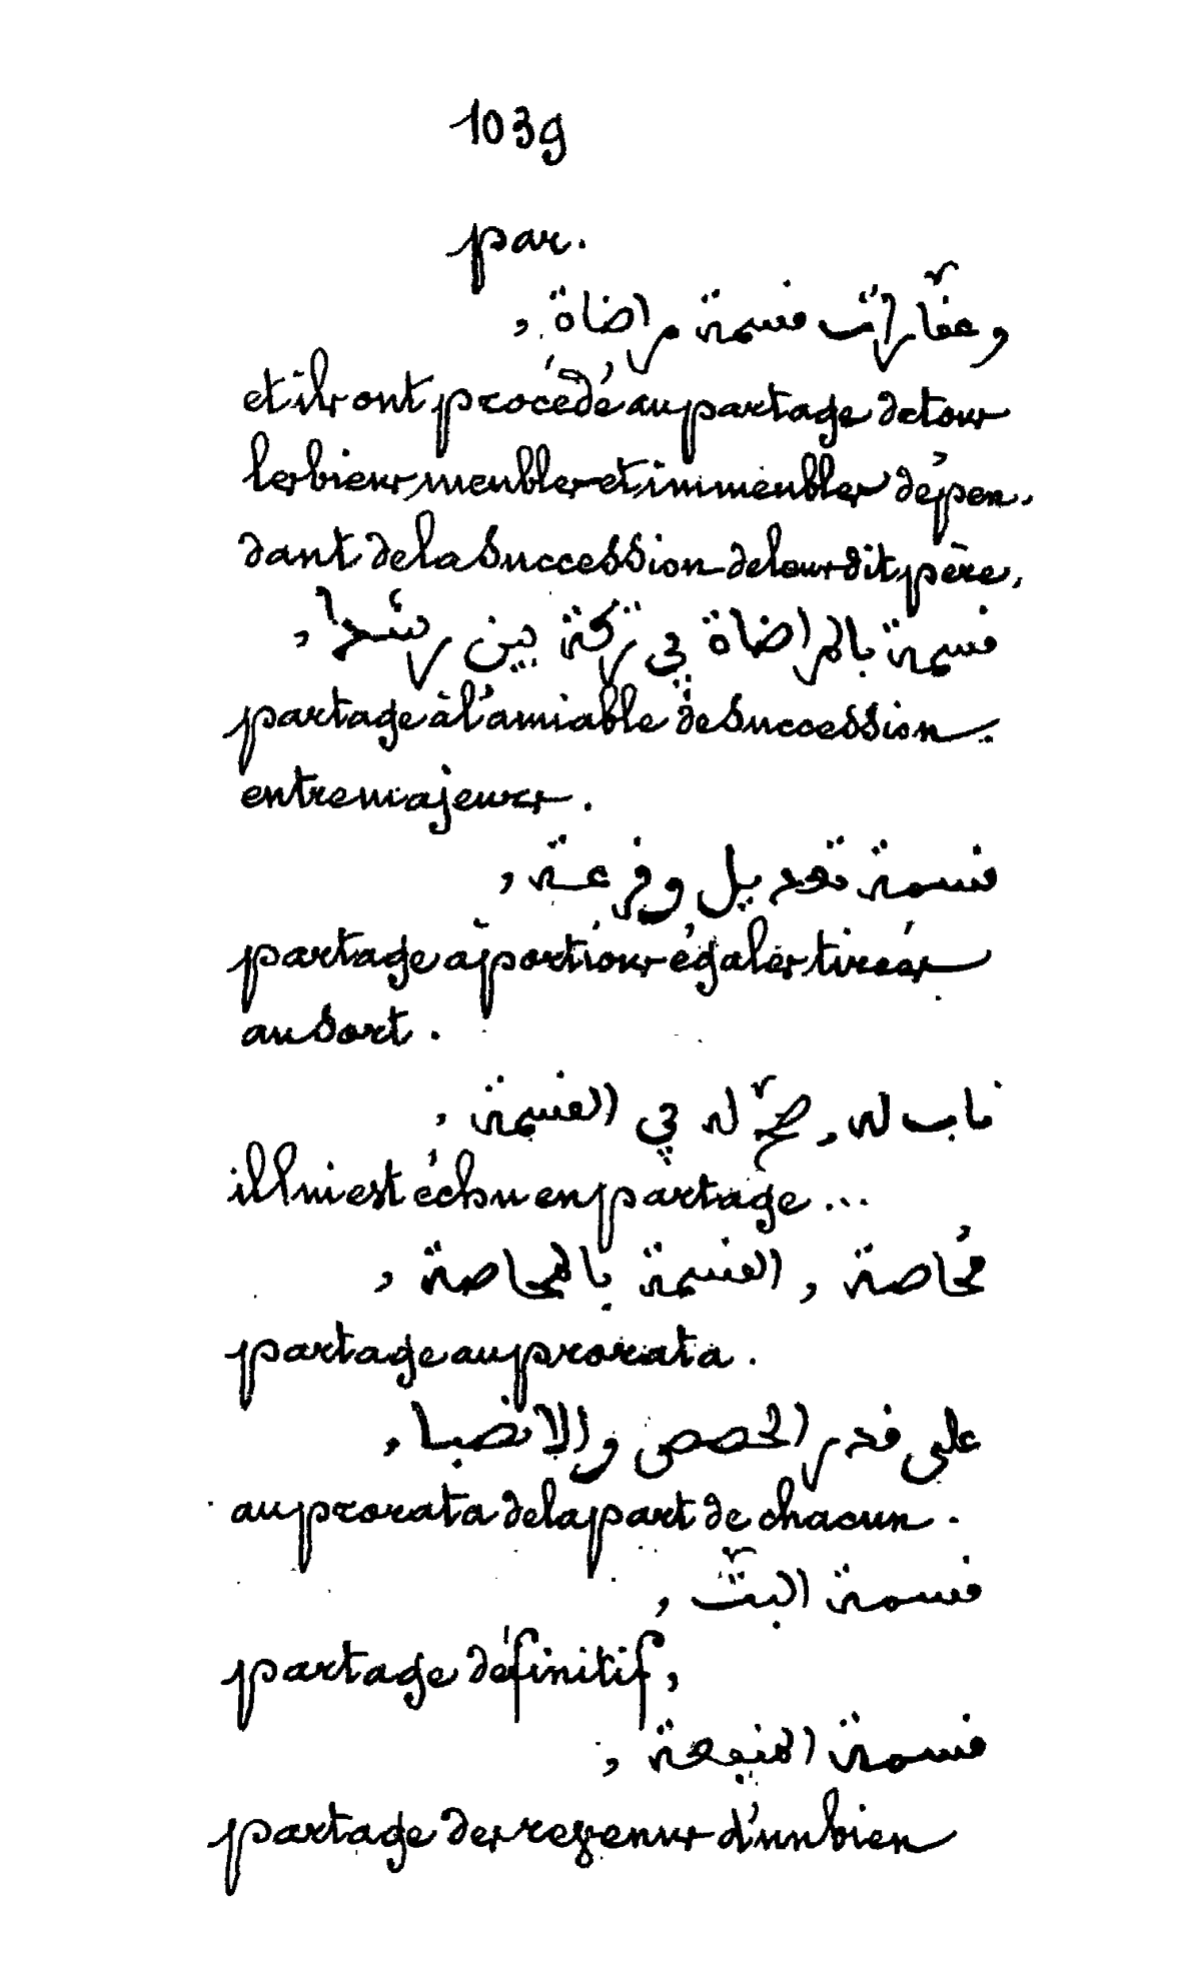 1039
par.
وعقّارات قسمة مراضاة,
et ils ont procédé au partage de tous
les biens, meubles et immeubles dépen-
dant de la succession de leur dit père,
قسمة بالمراضاة في تركة بين رشدا,
partage à l'amiable de succession
entre majeurs.
قسمة تعديل وقرعة,
partage à portions égales tirées
au sort.
ناب له, صحّ له في القسمة,
il lui est échu en partage...
مُحاصة, القسمة بالمحاصة,
partage au prorata.
على قدر الحصص والانصبا,
au prorata de la part de chacun.
قسمة البتّ,
partage définitif,
قسمة المنيعة,
partage des revenus d'un bien